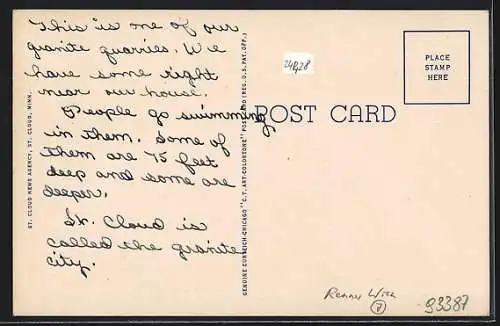 This is one of our
granite quarries. We
have some right
near our house.
People go swimming
in them. Some of
them are 75 feet
deep and some are
deeper.
St. Cloud is
called the granite
city.
ST. CLOUD NEWS AGENCY, ST. CLOUD, MINN.
GENUINE CURTEICH-CHICAGO "C.T. ART-COLORTONE" POST CARD (REG. U.S. PAT. OFF.)
POST CARD
PLACE
STAMP
HERE
93387